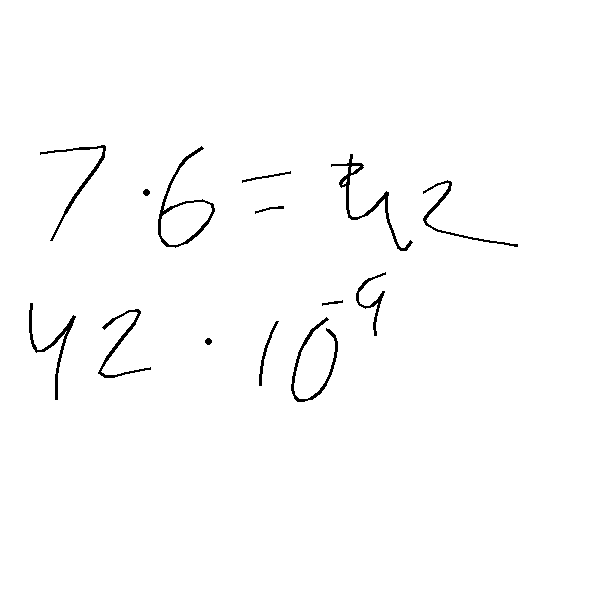 7 · 6 = 42
42 · 10⁻⁹